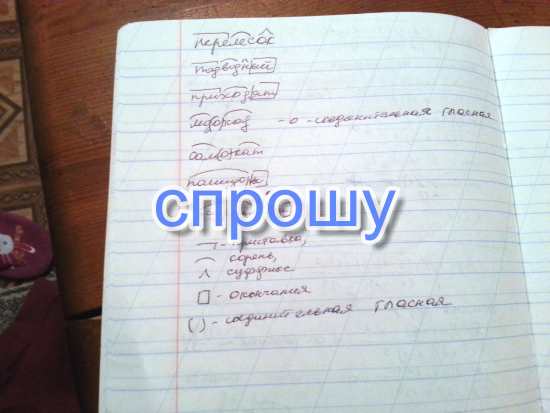 перелесок
подводный
приходят
ледоход - о - соединительная гласная
самокат
помидоры
спрошу
приставка,
корень,
суффикс
□ - окончания
( ) - соединительная гласная